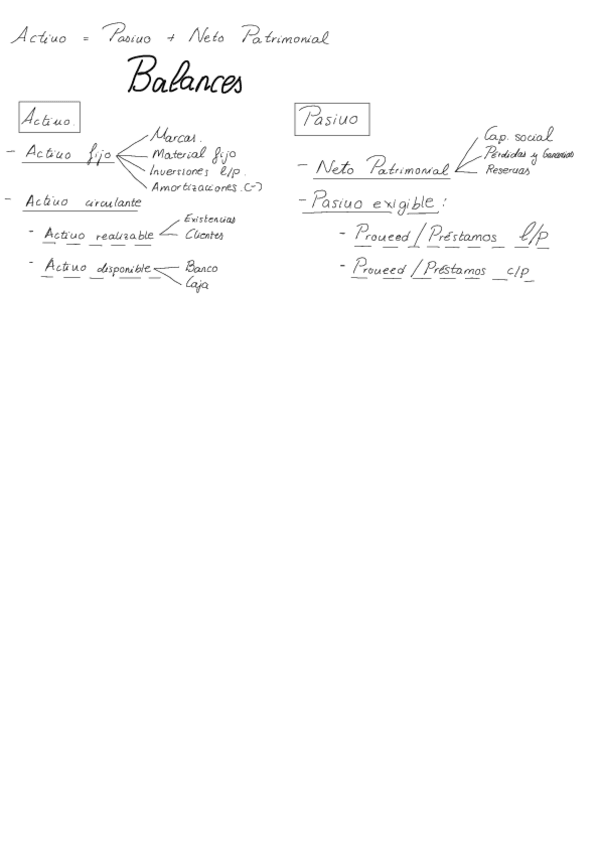 Activo = Pasivo + Neto Patrimonial
Balances
Activo.
- Activo fijo
Marcas.
Material fijo
Inversiones l/p.
Amortizaciones.(-)
- Activo circulante
- Activo realizable
Existencias
Clientes
- Activo disponible
Banco
Caja
Pasivo
- Neto Patrimonial
Cap. social
Pérdidas y Ganancias
Reservas
- Pasivo exigible:
- Proveed/Préstamos l/p
- Proveed/Préstamos c/p